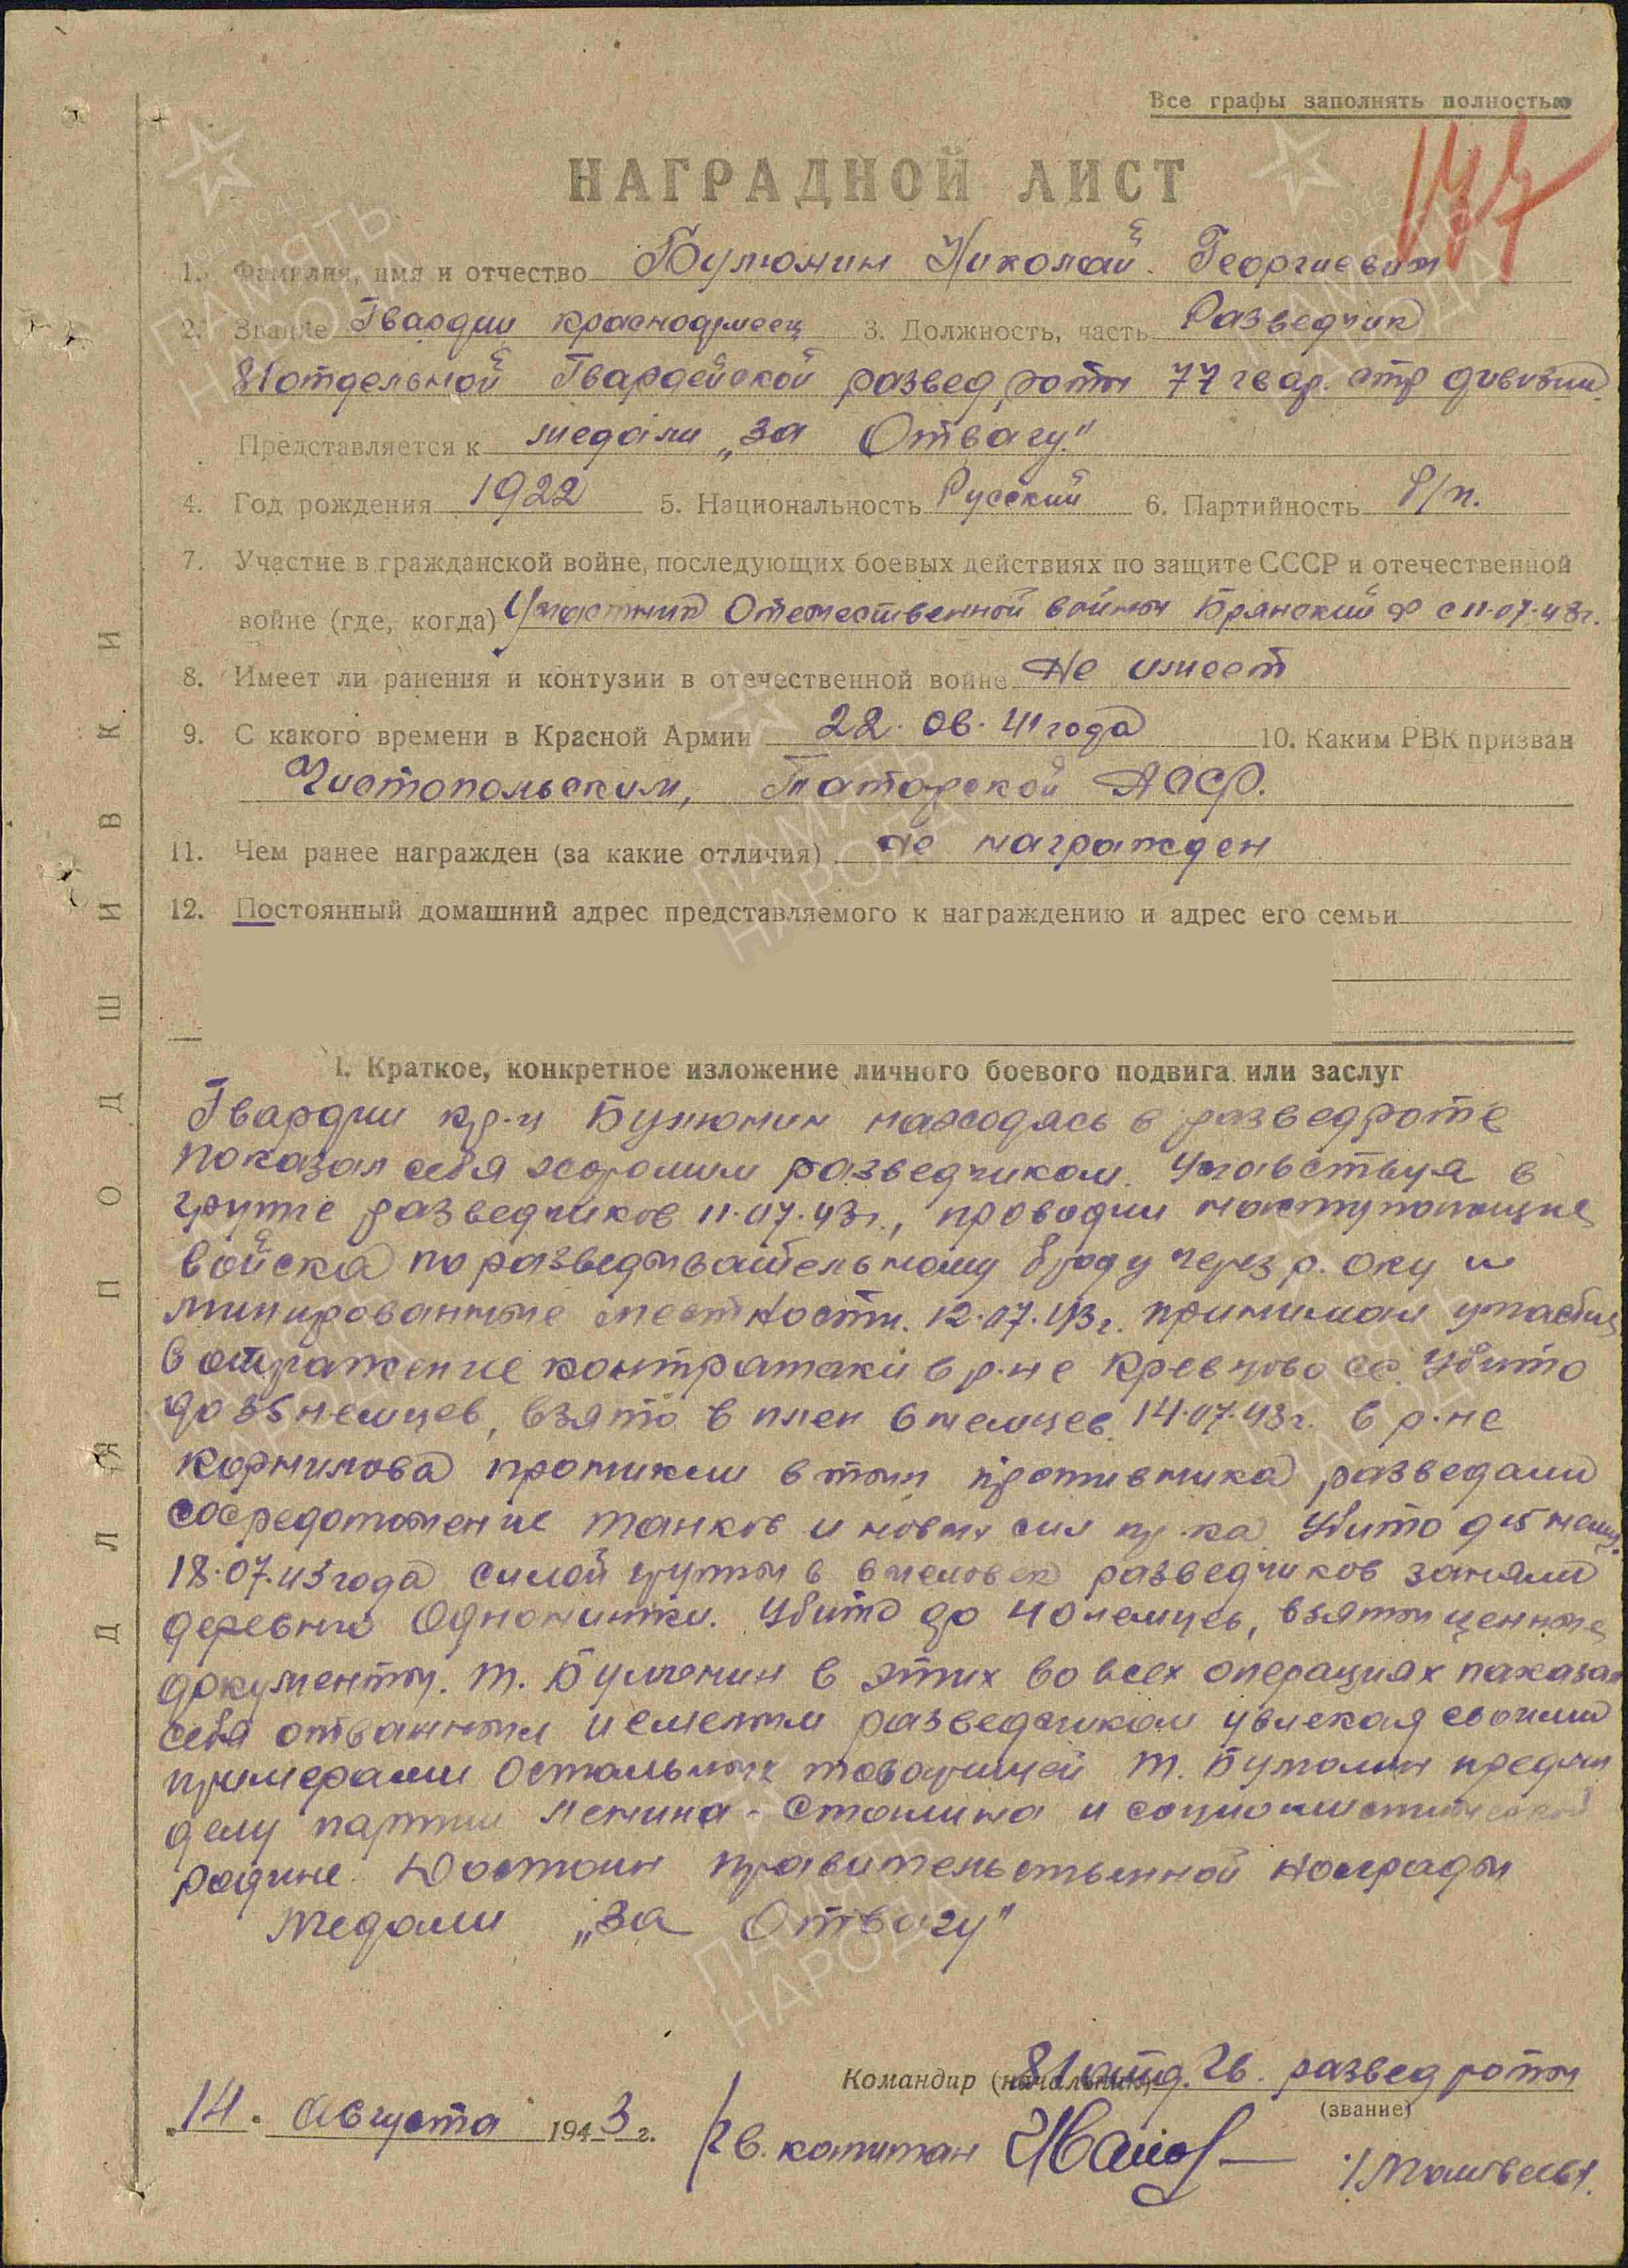 Все графы заполнять полностью
НАГРАДНОЙ ЛИСТ
1. Фамилия, имя и отчество Булюнин Николай Георгиевич
2. Звание Гвардии красноармеец 3. Должность, часть Разведчик
81 отдельной Гвардейской развед роты 77 гвар. стр дивизии.
Представляется к медали „За Отвагу"
4. Год рождения 1922 5. Национальность Русский 6. Партийность
7. Участие в гражданской войне, последующих боевых действиях по защите СССР и отечественной
войне (где, когда) Участник Отечественной войны Брянский ф с 11.07.43г.
8. Имеет ли ранения и контузии в отечественной войне Не имеет
9. С какого времени в Красной Армии 22.06.41 года 10. Каким РВК призван
Чистопольским, Татарской АССР.
11. Чем ранее награжден (за какие отличия) не награжден
12. Постоянный домашний адрес представляемого к награждению и адрес его семьи
I. Краткое, конкретное изложение личного боевого подвига или заслуг
Гвардии кр-ц Булюнин находясь в разведроте
показал себя хорошим разведчиком. Участвуя в
группе разведчиков 11.07.43г., проводил наступающие
войска по разведывательному броду через р. Оку и
минированные местности. 12.07.43г. принимал участие
в отражение контратаки в р-не Кревцово Убито
до 35 немцев, взято в плен 6 немцев. 14.07.43г. в р-не
Корнилова проникли в тыл противника разведали
сосредоточение танков и новых сил пр-ка. Убито
18.07.43 года силой группы в 6 человек разведчиков заняли
деревню Однолитки. Убито до 40 немцев, взяты ценные
документы. т. Булюнин в этих во всех операциях паказал
себя отважным и смелым разведчиком увлекая своими
примерами остальных товарищей т. Булюнин предан
делу партии Ленина - Сталина и социалистической
родине Достоин правительственной награды
медали „За Отвагу"
Командир (начальник) 81 отд. гв. развед роты
(звание)
„14" Августа 1943 г. гв. капитан
ДЛЯ ПОДШИВКИ
ПАМЯТЬ НАРОДА